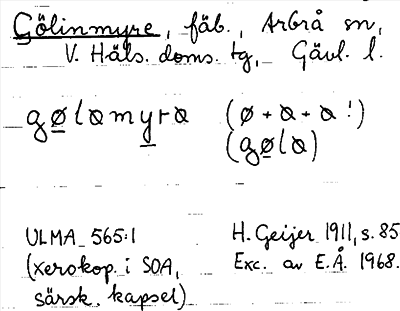 Gölinmyre, fäb., Arbrå sn,
V. Häls. doms. tg, Gävl. l.
gølamyra (ø + a + a !)
(gøla)
ULMA 565:1 H. Geijer 1911, s. 85
(xerokop. i SOA, Exc. av E.Å. 1968.
särsk. kapsel)